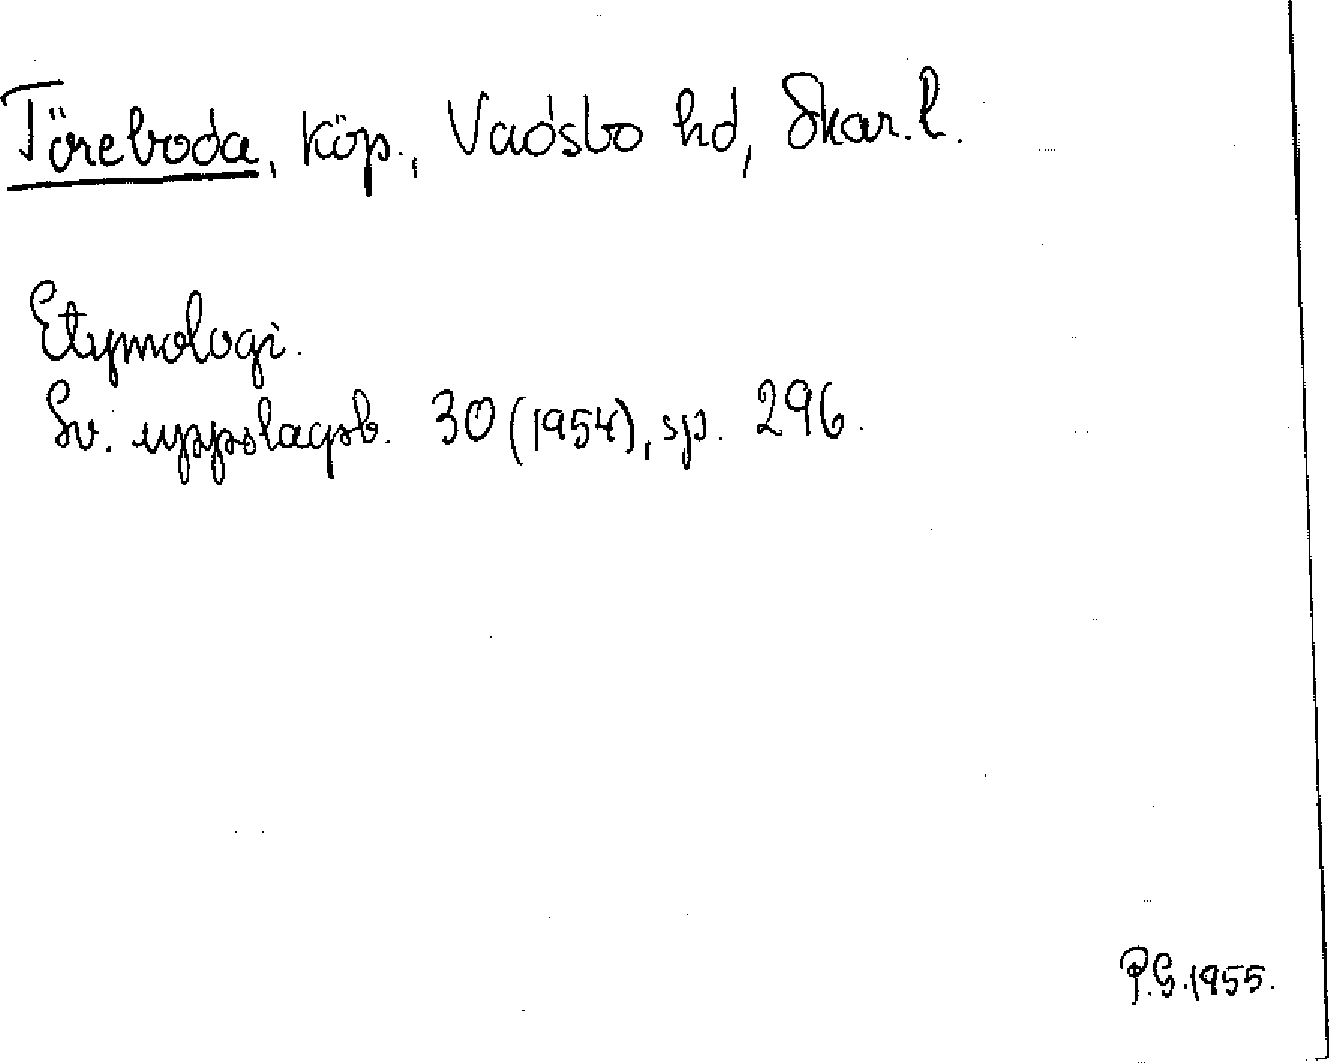 Töreboda, köp., Vadsbo hd, Skar. l.
Etymologi.
Sv. uppslagsb. 30 (1954), sp. 296.
P.G. 1955.